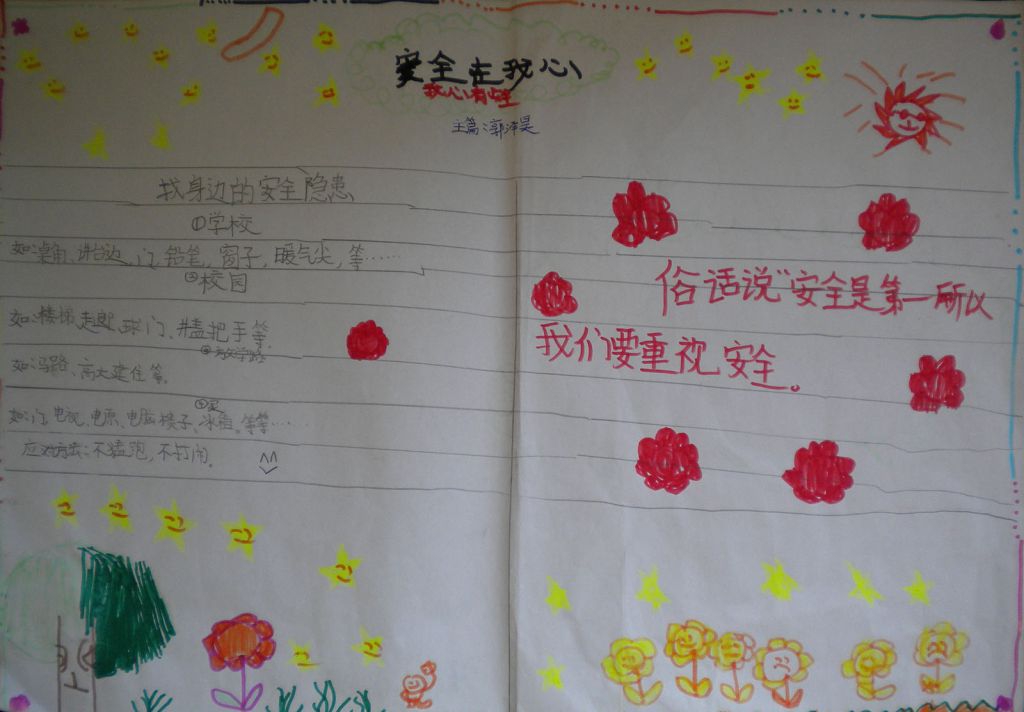 安全在我心
主篇:郭泽昊
找身边的安全隐患
①学校
如:桌角、讲台边、门、铅笔,窗子,暖气尖,等……
②校园
如:楼梯、球门、井盖把手等。
如:马路、高大建住等。
④家
如:门、电视、电原、电脑、冰箱。等等……
应对方法:不猛跑,不打闹。
俗话说"安全是第一所以
我们要重视安全。